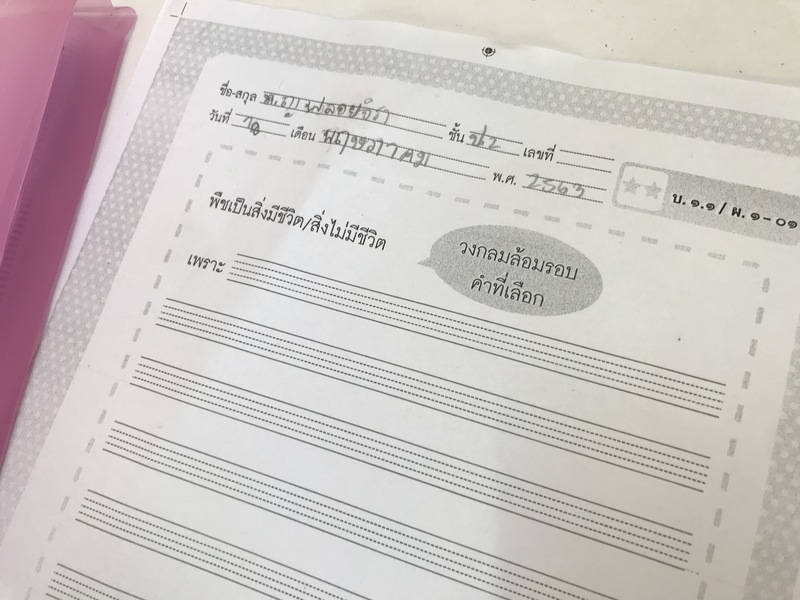 ชื่อ-สกุล ด.ญ พลอยจิรา ชั้น ป.2 เลขที่
วันที่ เดือน พฤษภาคม พ.ศ. 2563
บ. ๑.๑ / ผ. ๑ - ๐๑
พืชเป็นสิ่งมีชีวิต/สิ่งไม่มีชีวิต
วงกลมล้อมรอบ
คำที่เลือก
เพราะ